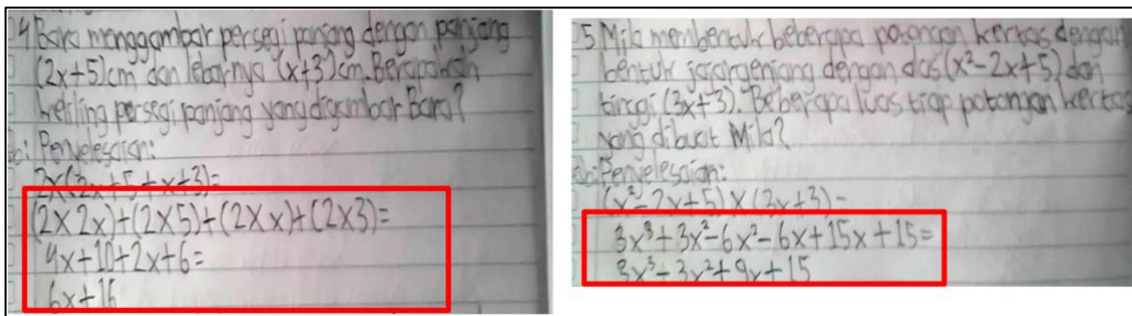 4 Bara menggambar persegi panjang dengan panjang
(2x+5)cm dan lebarnya (x+3)cm. Berapakah
keliling persegi panjang yang digambar Bara?
Penyelesaian:
2x(2x+5+x+3)=
(2×2x)+(2×5)+(2×x)+(2×3)=
4x+10+2x+6=
6x+16
5 Mila membentuk beberapa potongan kertas dengan
bentuk jajargenjang dengan alas (x²-2x+5) dan
tinggi (3x+3). Beberapa luas tiap potongan kertas
yang dibuat Mila?
Penyelesaian:
(x²-2x+5)×(3x+3)=
3x³+3x²-6x²-6x+15x+15=
3x³-3x²+9x+15